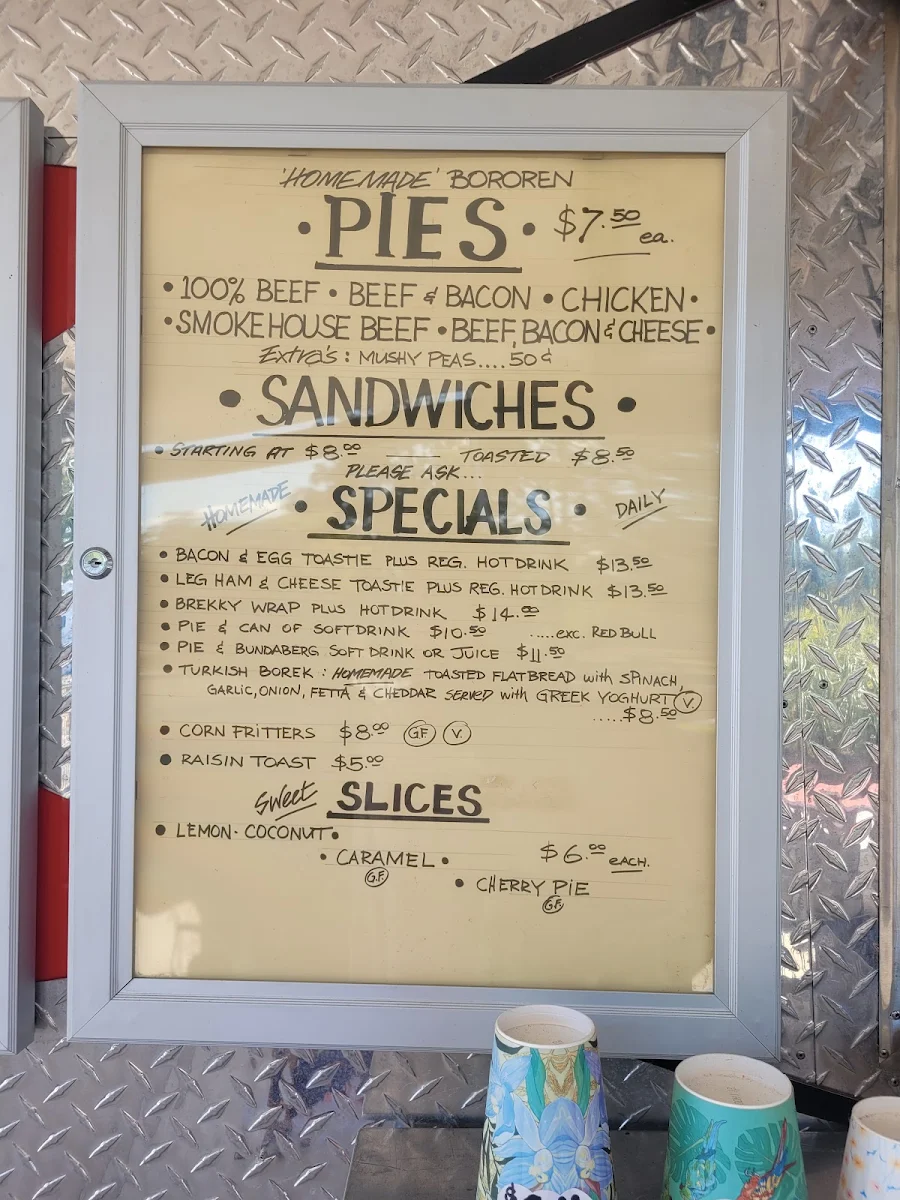 'HOMEMADE' BOROREN
• PIES • $7.50 ea.
• 100% BEEF • BEEF & BACON • CHICKEN •
• SMOKEHOUSE BEEF • BEEF, BACON & CHEESE •
Extra's : MUSHY PEAS....50¢
• SANDWICHES •
• STARTING AT $8.00 —— TOASTED $8.50
PLEASE ASK...
HOMEMADE • SPECIALS • DAILY
• BACON & EGG TOASTIE PLUS REG. HOTDRINK $13.50
• LEG HAM & CHEESE TOASTIE PLUS REG. HOTDRINK $13.50
• BREKKY WRAP PLUS HOTDRINK $14.00
• PIE & CAN OF SOFTDRINK $10.50 .....exc. RED BULL
• PIE & BUNDABERG SOFT DRINK OR JUICE $11.50
• TURKISH BOREK : HOMEMADE TOASTED FLATBREAD with SPINACH,
GARLIC, ONION, FETTA & CHEDDAR SERVED with GREEK YOGHURT V.
.....$8.50
• CORN FRITTERS $8.00 GF V.
• RAISIN TOAST $5.00
Sweet SLICES
• LEMON-COCONUT •
• CARAMEL • $6.00 EACH.
G.F.
• CHERRY PIE
G.F.